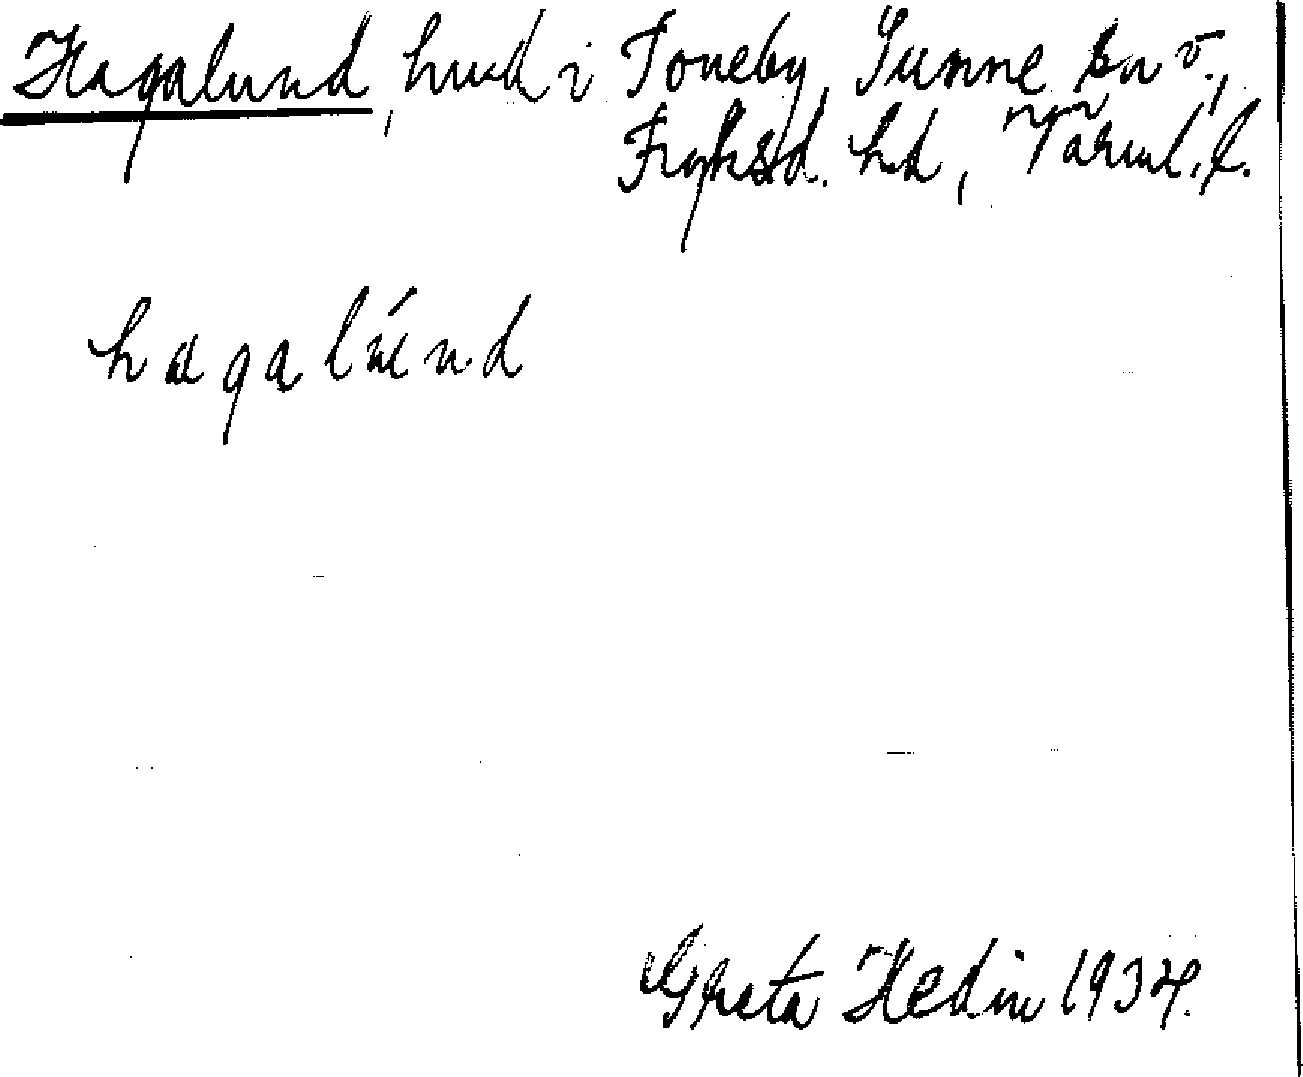 Hagalund, hmd i Toneby, Sunne sn v.,
Fryksd. hd, Värml. l.
hagalúnd
Greta Hedin 1934.